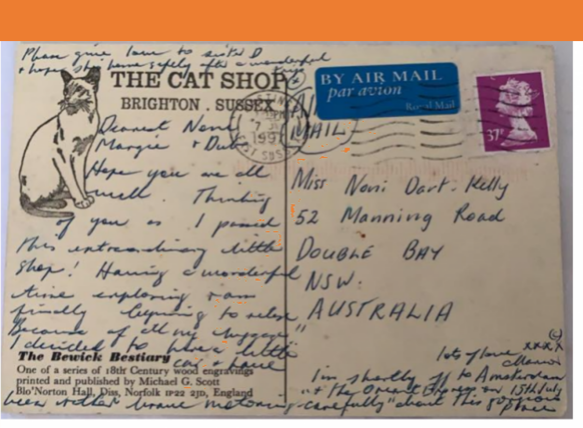 Please give love to sister D
& hope she's home safely after a wonderful
THE CAT SHOP
BRIGHTON . SUSSEX
Dearest Noni
Margie + Dut
Hope you are all
well. Thinking
of you as I passed
this extraordinary little
shop! Having a wonderful
time exploring & am
finally beginning to relax
Because of all my luggage
I decided to hire a little
car & have
The Bewick Bestiary
One of a series of 18th Century wood engravings
printed and published by Michael G. Scott
Blo'Norton Hall, Diss, Norfolk IP22 2JD, England
been rather brave motoring "carefully" about this gorgeous
place
BY AIR MAIL
par avion
Royal Mail
AIR
MAIL
7
199
37P
Miss Noni Dart-Kelly
52 Manning Road
DOUBLE BAY
NSW.
AUSTRALIA
xxxx
lots of love
I'm shortly off to Amsterdam
+ the Orient Express on 15th July